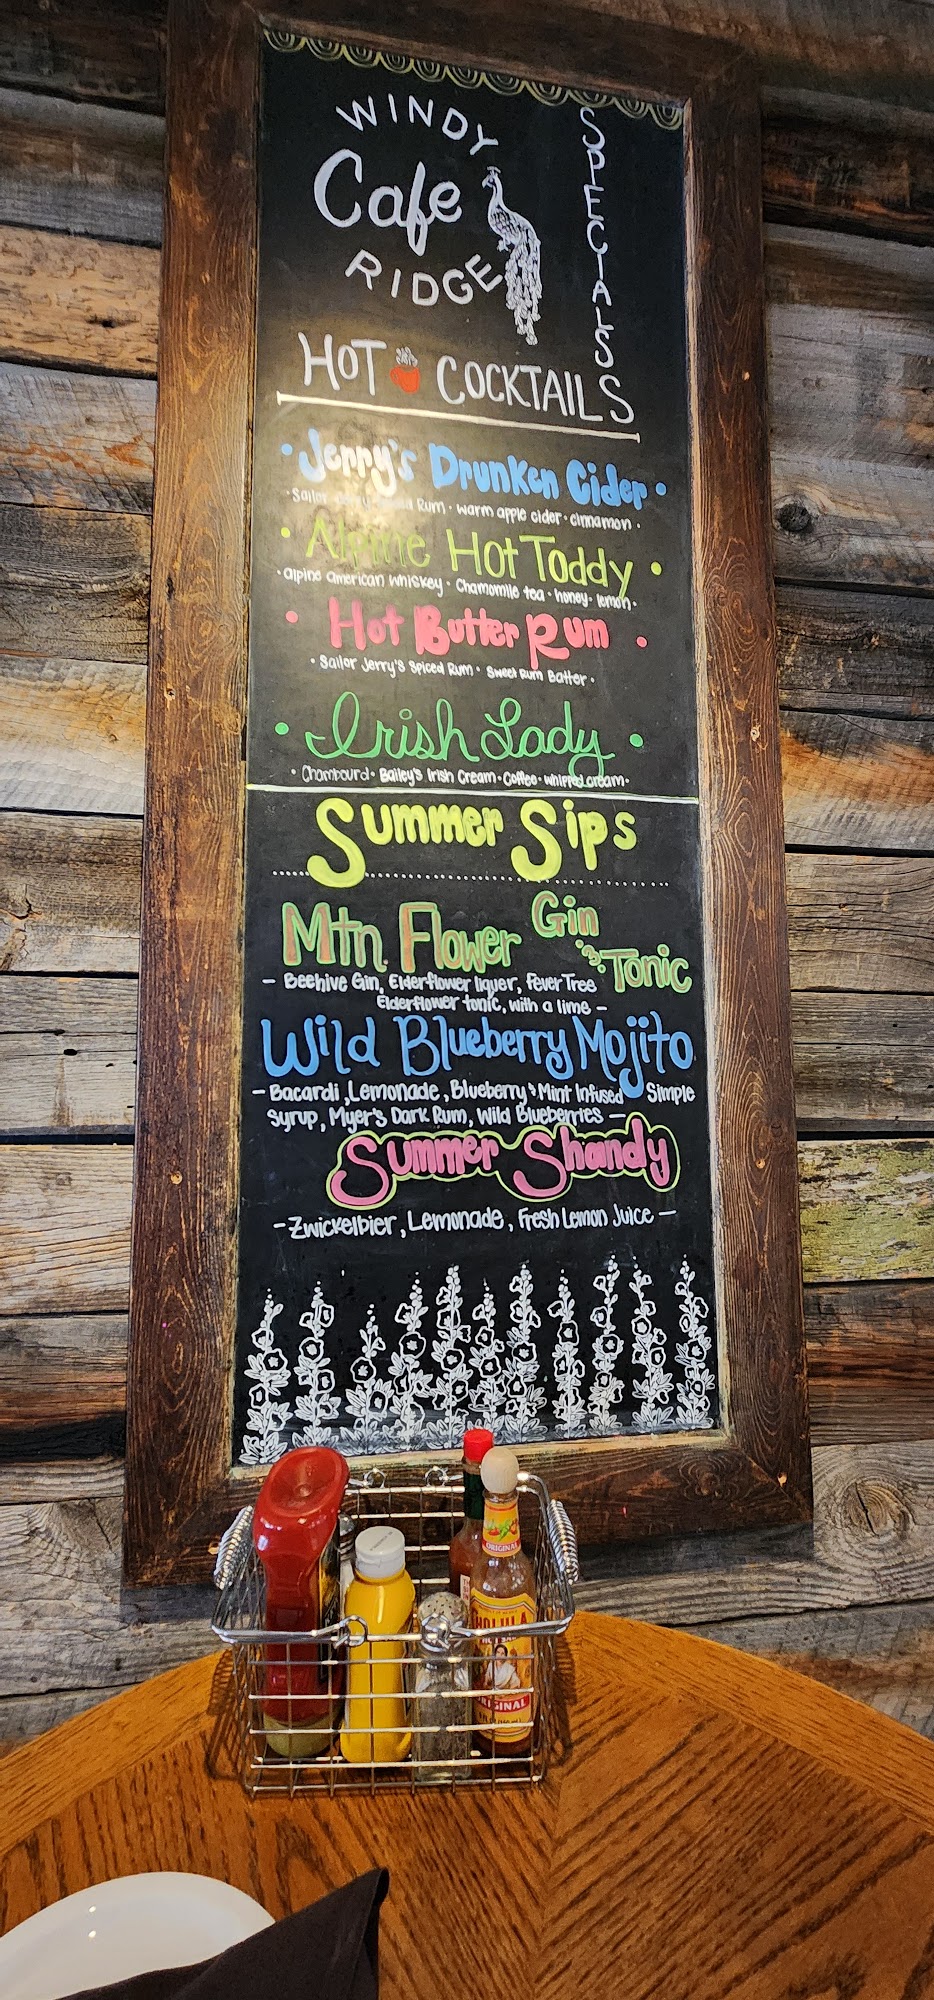 WINDY
Cafe
RIDGE
SPECIALS
HOT COCKTAILS
• Jerry's Drunken Cider •
• Sailor Rum • warm apple cider • cinnamon •
• Alpine Hot Toddy •
• alpine american whiskey • Chamomile tea • honey • lemon •
• Hot Butter Rum •
• Sailor Jerry's Spiced Rum • Sweet Rum Batter •
• Irish Lady •
• Chambourd • Bailey's Irish Cream • Coffee • whipped cream •
Summer Sips
Mtn. Flower Gin
'n' Tonic
– Beehive Gin, Elderflower liquer, Fever Tree
Elderflower tonic, with a lime –
Wild Blueberry Mojito
– Bacardi, Lemonade, Blueberry & Mint Infused Simple
Syrup, Myer's Dark Rum, Wild Blueberries –
Summer Shandy
– Zwickelbier, Lemonade, Fresh Lemon Juice –
ORIGINAL
CHOLULA
ORIGINAL